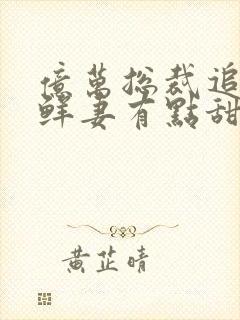 億萬總裁追
鮮妻有點甜
黃芷晴